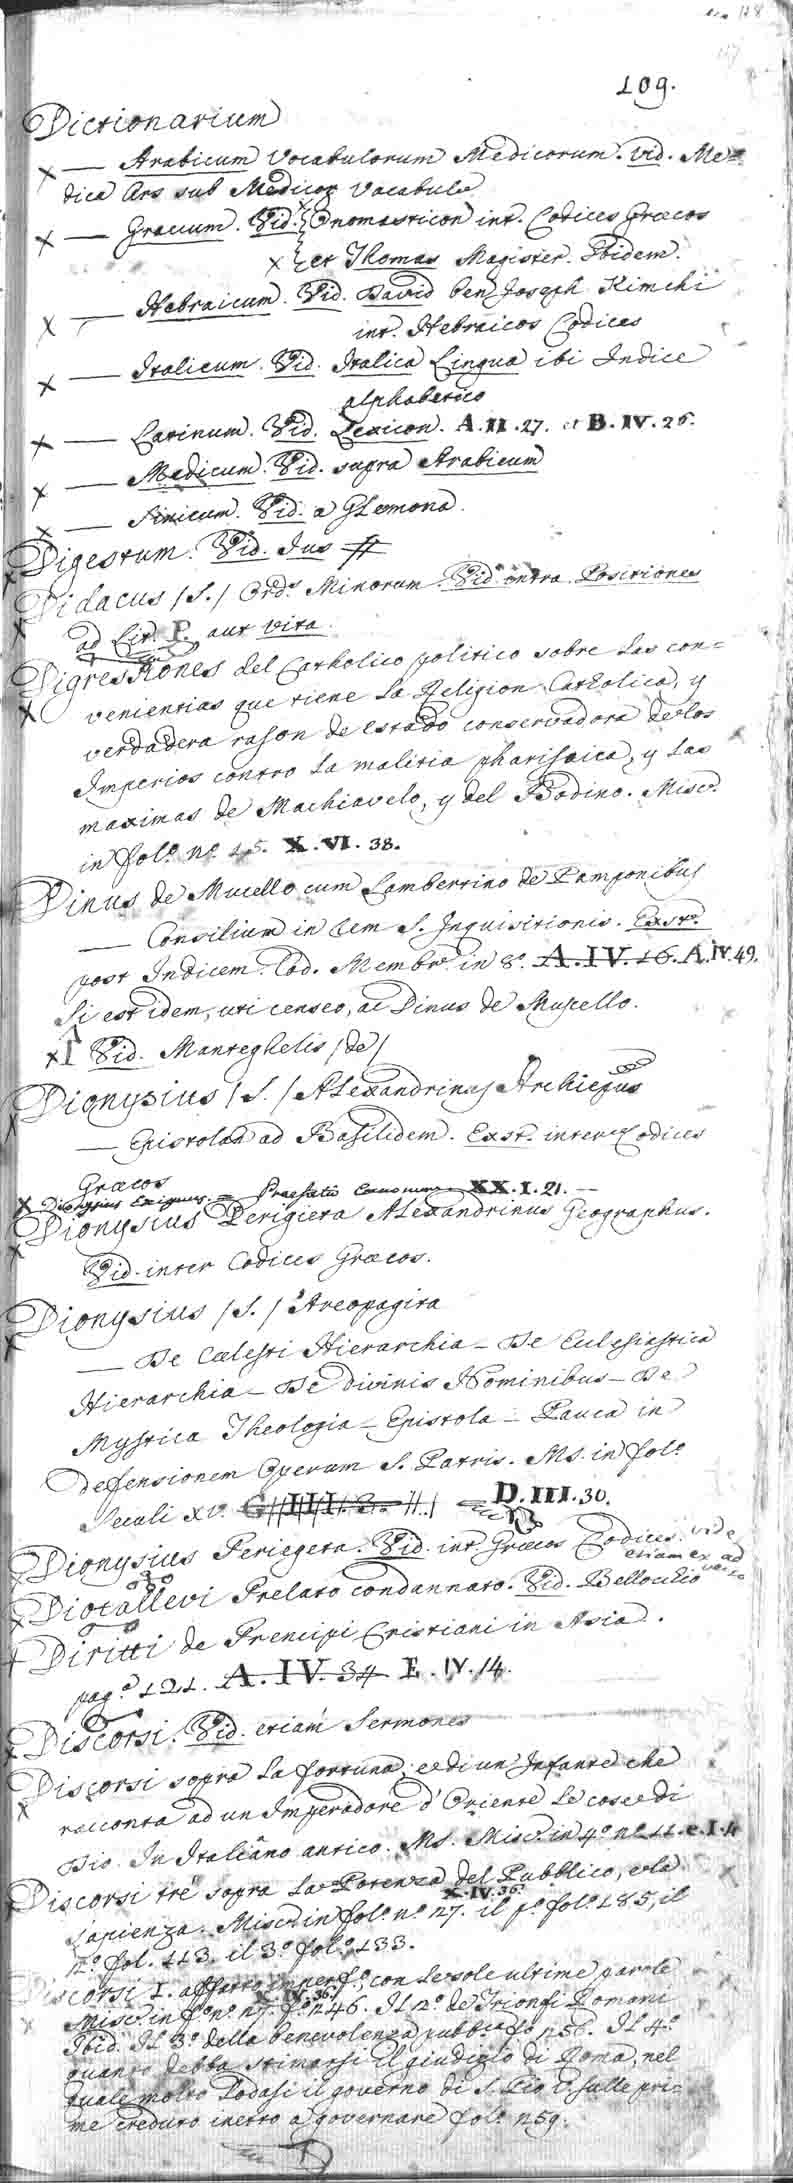 128
109.
Dictionarium
x — Arabicum Vocabulorum Medicorum. Vid. Me=
dica Ars sub Medicor Vocabula
x — Græcum. Vid. { Onomasticon int. Codices Græcos
x { et Thomas Magister. Ibidem.
x — Hebraicum. Vid. David ben Joseph Kimchi
int. Hebraicos Codices
x — Italicum. Vid. Italica Lingua ibi Indice
alphabetico
x — Latinum. Vid. Lexicon. A.II.27. et B.IV.26.
x — Medicum. Vid. supra Arabicum
x — Sinicum. Vid. a Glemona.
x Digestum. Vid. Jus ff
x Didacus /S./ Ord.s Minorum. Vid. Positiones
ad Lit. P. aut vita.
x Digressiones del Catholico politico sobre las con=
venientias que tiene la Religion Catholica, y
verdadera rason de estado conservadora de los
Imperios contro la malitia pharisaica, y las
maximas de Machiavelo, y del Bodino. Misc.
in fol.o n.o 15. X.VI.38.
Dinus de Mucello cum Lambertino de Pamponibus
— Consilium in Rem S. Inquisitionis. Exst.
post Indicem. Cod. Membr. in 8.o A.IV.16. A.IV.49.
Si est idem, uti censeo, ac Dinus de Muscello.
x Vid. Manteghelis /de/
x Dionysius /S./ Alexandrinus Archiepus
— Epistolam ad Basilidem. Exst. inter Codices
Græcos
x Dionysius Exiguus. = Praefatio Canonum. XX.I.21. —
x Dionysius Perigieta Alexandrinus Geographus.
Vid. inter Codices Græcos.
x Dionysius /S./ Areopagita
— De Cælesti Hierarchia — De Eclesiastica
Hierarchia — De divinis Nominibus — De
Mystica Theologia — Epistola — Pauca in
defensionem Operum S. Patris. Ms. in fol.o
Seculi XV. G.III.3. D.III.30.
x Dionysius Periegeta. Vid. int. Græcos Codices. vide
etiam ex ad
verso
x Diotallevi Prelato condannato. Vid. Bellocchio
x Diritti de Prencipi Cristiani in Asia.
pag.e 121. A.IV.34 E.IV.14.
x Discorsi. Vid. etiam Sermones
x Discorsi sopra la fortuna, e di un Infante che
racconta ad un Imperadore d'Oriente le cose di
Dio. In Italiano antico. Ms. Misc. in 4.o n.o 11. e.I.4
x Discorsi tre sopra la Potenza del Pubblico, e la
X.IV.36.
sapienza. Misc. in fol.o n.o 27. il p.o fol.o 185, il
2.o fol. 113. il 3.o fol.o 133.
Discorsi 1. affatto imperf.o, con le sole ultime parole
X.IV.36.
Misc. in f.o n.o 27. f.o 246. Il 2.o de Trionfi Romani
Ibid. Il 3.o della benevolenza pubb.ca fo 256. Il 4.o
quanto debba stimarsi il giudizio di Roma, nel
quale molto Lodasi il governo di S. Pio V. sulle pri=
me creduto inetto a governare fol.o 259.